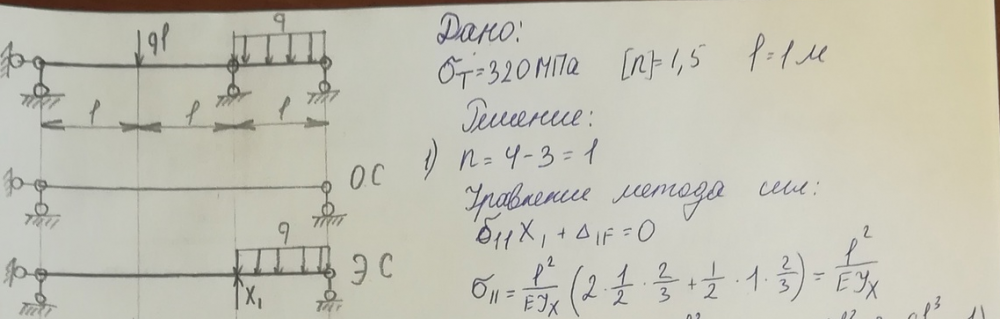 q
ql
l
l
l
О.С
q
Э С
X₁
Дано:
σт=320МПа [n]=1,5 l=1м
Решение:
1) n=4-3=1
Уравнение метода сил:
δ₁₁X₁+Δ₁F=0
δ₁₁=l²/EJx(2·1/2·2/3+1/2·1·2/3)=l²/EJx